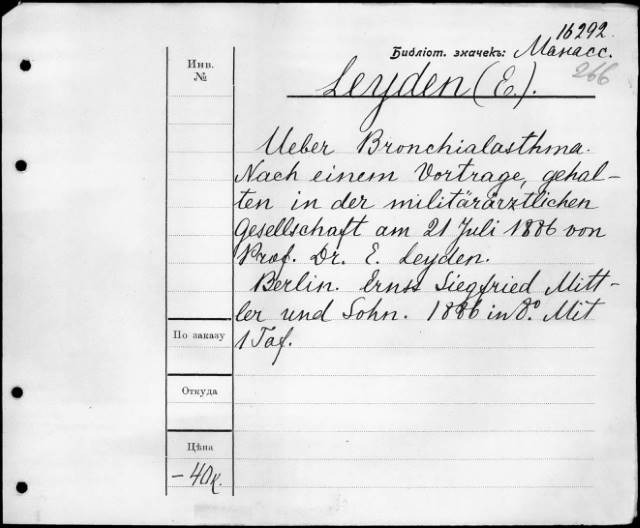 16292.
Библіот. значекъ: Манасс.
266
Инв.
№
Leyden (E.).
Ueber Bronchialasthma.
Nach einem Vortrage, gehal-
ten in der militärärztlichen
Gesellschaft am 21 Juli 1886 von
Prof. Dr. E. Leyden.
Berlin. Ernst Siegfried Mitt-
ler und Sohn. 1886 in 8º. Mit
1 Taf.
По заказу
Откуда
Цѣна
– 40к.